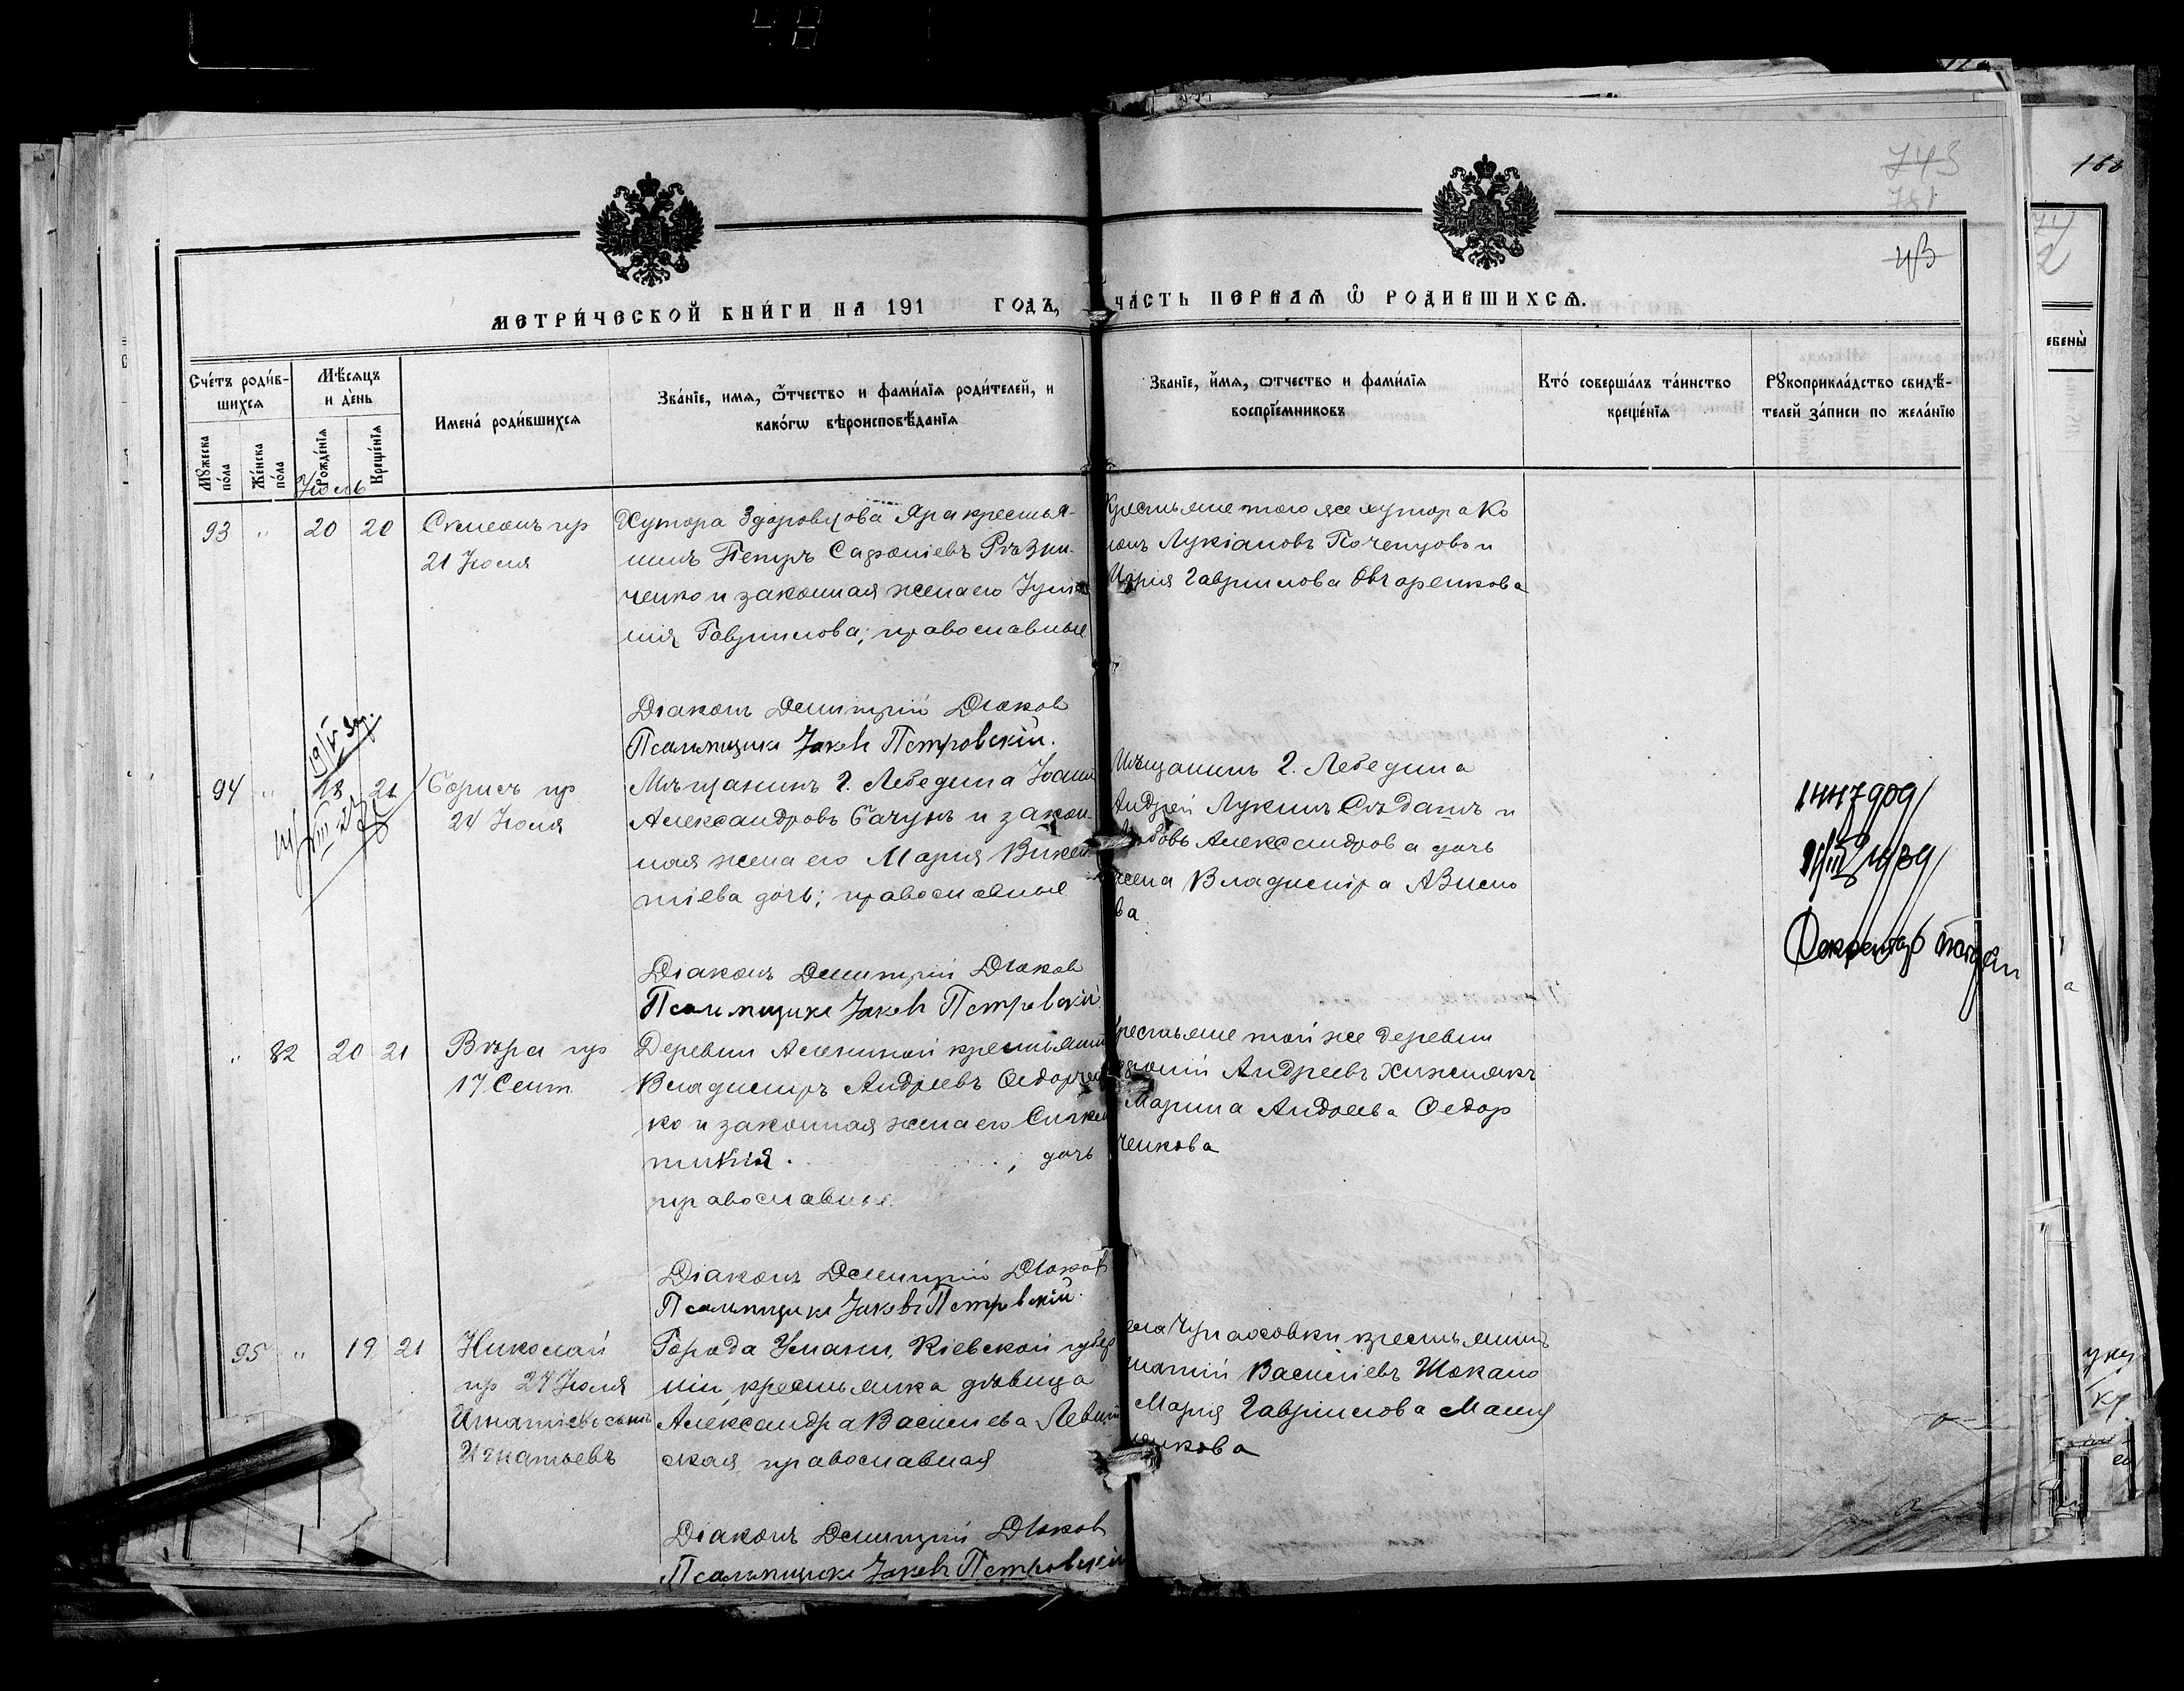 48
743
781
168
МЕТРИ́ЧЕСКОЙ КНИ́ГИ НА 191 ГОДЪ, ЧА́СТЬ ПЕРВАЯ Ѿ РОДИВШИХСѦ.
Сче́тъ роди́в-
шихсѧ
Мѣ́сѧцъ
и де́нь
Имена́ роди́вшихсѧ
Зва́нїе, имѧ, ѿчество и фами́лїѧ роди́телей, и
како́гѡ вѣроисповѣ́данїѧ
Зва́нїе, и́мѧ, ѻтчество и фами́лїѧ
воспрїе́мниковъ
Кто́ соверша́лъ та́инство
креще́нїѧ
Рꙋкоприкла́дство свидѣ́-
телей за́писи по жела́нїю
Мꙋжеска
по́ла
Же́нска
по́ла
Рожде́нїѧ
Креще́нїѧ
Іюль
93 " 20 20
Симеонъ пр
21 Іюля
Хутора Здоровцова Яра крестья-
нинъ Петръ Сафоніевъ Рѣзни-
ченко и законная жена его Іулiа
нія Гаврилова; православные
Крестьяне того же хутора Ко
нонъ Лукіановъ Поченцовъ и
Марія Гаврилова Овчаренкова
Діаконъ Димитрій Дюков
Псаломщикъ Іаковъ Петровскій.
94 " 18 21
Борисъ пр
24 Іюля
Мѣщанинъ г. Лебедина Іоанн
Александровъ Бачунъ и закон-
ная жена его Марія Викен
тіева дочь; православные
Мѣщанинъ г. Лебедина
Андрей Лукинъ Сѣдашъ и
Любовь Александрова дочь
жена Владиміра Азимо
ва
Діаконъ Димитрій Дюков
Псаломщикъ Іаковъ Петровскій
" 82 20 21
Вѣра пр
17 Сент
Деревни Алениной крестьянин
Владиміръ Андреевъ Ѳедорчен
ко и законная жена его Синкли
тикія . , дочь
православные.
крестьяне той же деревни
Андреевъ Хижнякъ
Марина Андреева Ѳедор
ченкова
Діаконъ Димитрій Дюков
Псаломщикъ Іаковъ Петровскій.
95 " 19 21
Николай
пр 27 Іюля
Игнатіевъ сынъ
Игнатьевъ
Города Умани, Кіевской губер
ніи крестьянка дѣвица
Александра Василіева Левит
ская, православная
села Чупаховки крестьянинъ
Игнатій Василіевъ Шокало
Марія Гаврилова Маслѧ
енкова
Діаконъ Димитрій Дюков
Псаломщикъ Іаковъ Петровскій